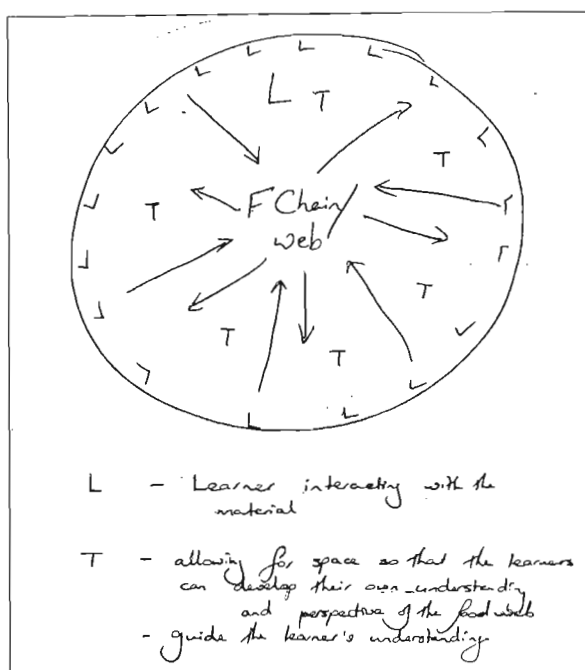 L L L L L
L T L
L L
L T
T
L F Chain/ L
web L
L T
L T L
T
L L
L L
L - Learner interacting with the
material
T - allowing for space so that the learners
can develop their own understanding
and perspective of the food web
- guide the learner's understanding